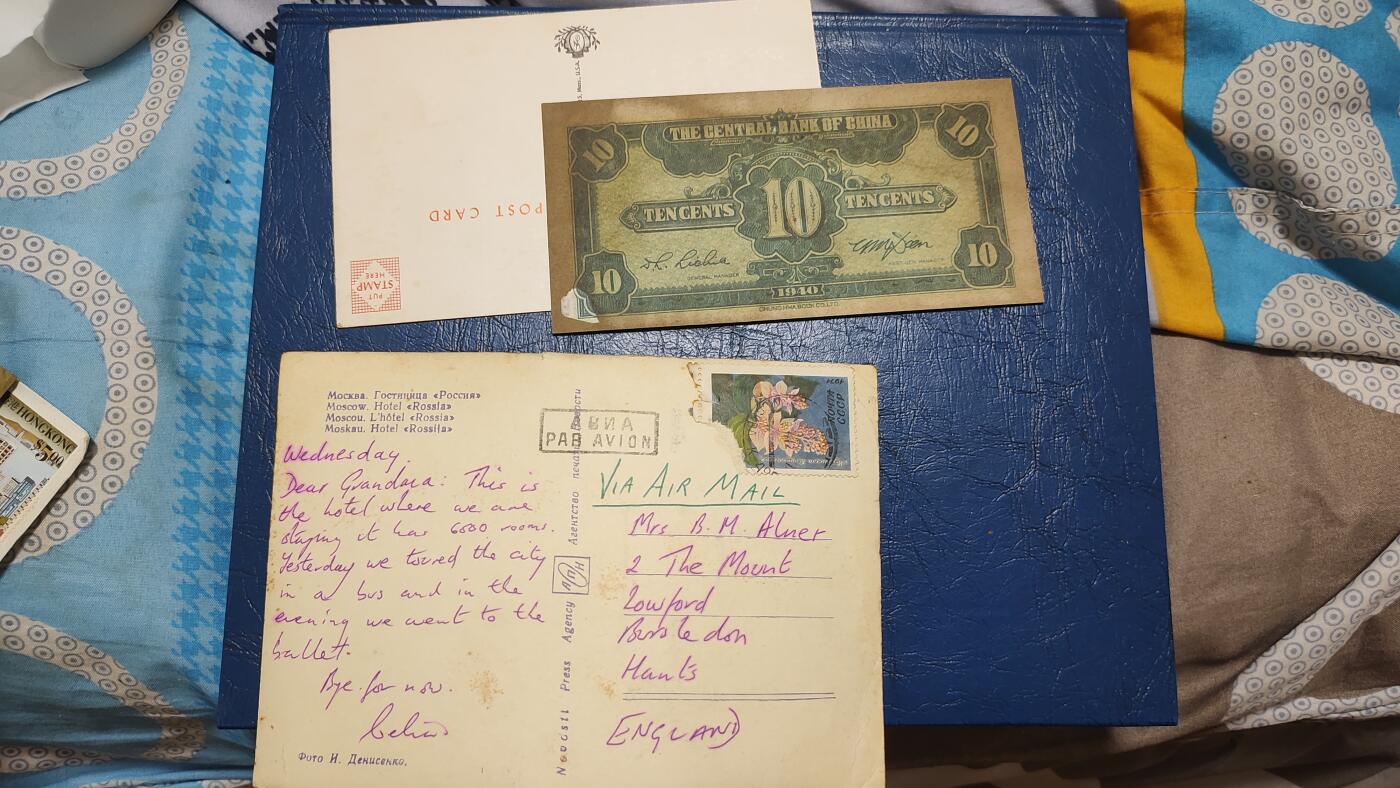 S, Mass., U.S.A.
POST CARD
PUT
STAMP
HERE
THE CENTRAL BANK OF CHINA
10
10
TEN CENTS
10
TEN CENTS
GENERAL MANAGER
ASST. GEN. MANAGER
10
10
1940
CHUNG HWA BOOK CO., LTD.
HONG KONG
Москва. Гостиница «Россия»
Moscow. Hotel «Rossia»
Moscou. L'hôtel «Rossia»
Moskau. Hotel «Rossija»
Wednesday.
Dear Grandma: This is
the hotel where we are
staying it has 6500 rooms.
Yesterday we toured the city
in a bus and in the
evening we went to the
ballet.
Bye for now.
Фото И. Денисенко.
Novosti Press Agency
АПН
Агентство печати Новости
АВИА
PAR AVION
почта
СССР
VIA AIR MAIL
Mrs B. M. Alner
2 The Mount
Lowford
Bursledon
Hants
ENGLAND